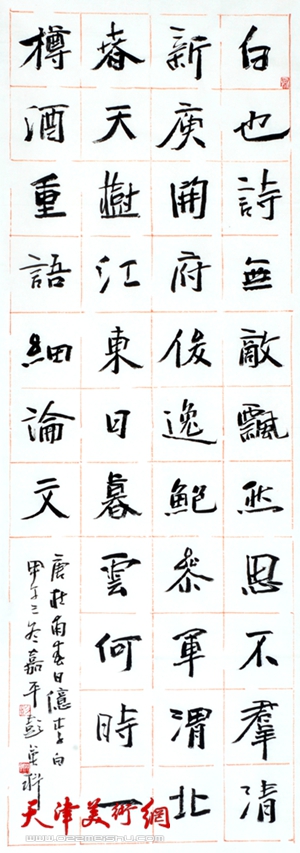 白也詩無敵飄然思不羣清
新庾開府俊逸鮑参軍渭北
春天樹江東日暮雲何時一
樽酒重語細論文
唐杜甫春日憶李白
甲午冬嘉平彭英科
天津美術網